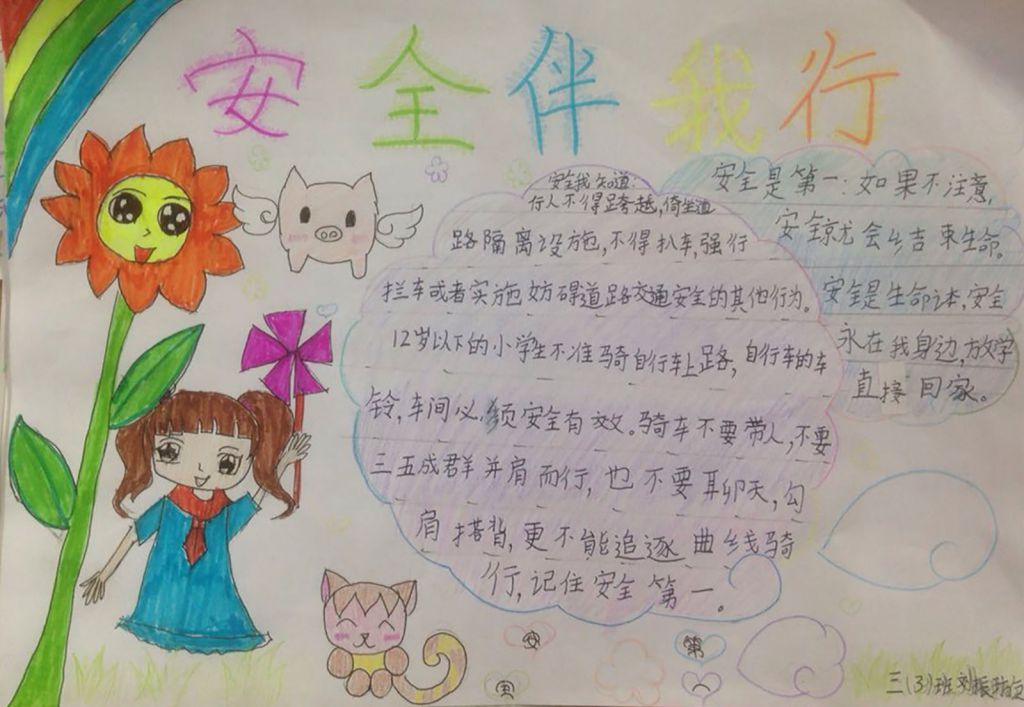 安全伴我行
安全我知道:
行人不得跨越,倚坐道
路隔离设施,不得扒车,强行
拦车或者实施妨碍道路交通安全的其他行为。
12岁以下的小学生不准骑自行车上路,自行车的车
铃,车闸必须安全有效。骑车不要带人,不要
三五成群并肩而行,也不要聊天,勾
肩搭背,更不能追逐曲线骑
行,记住安全第一。
安全是第一:如果不注意,
安全就会结束生命。
安全是生命 安全
永在我身边,放学
直接回家。
安
第
一
三(3)班刘振